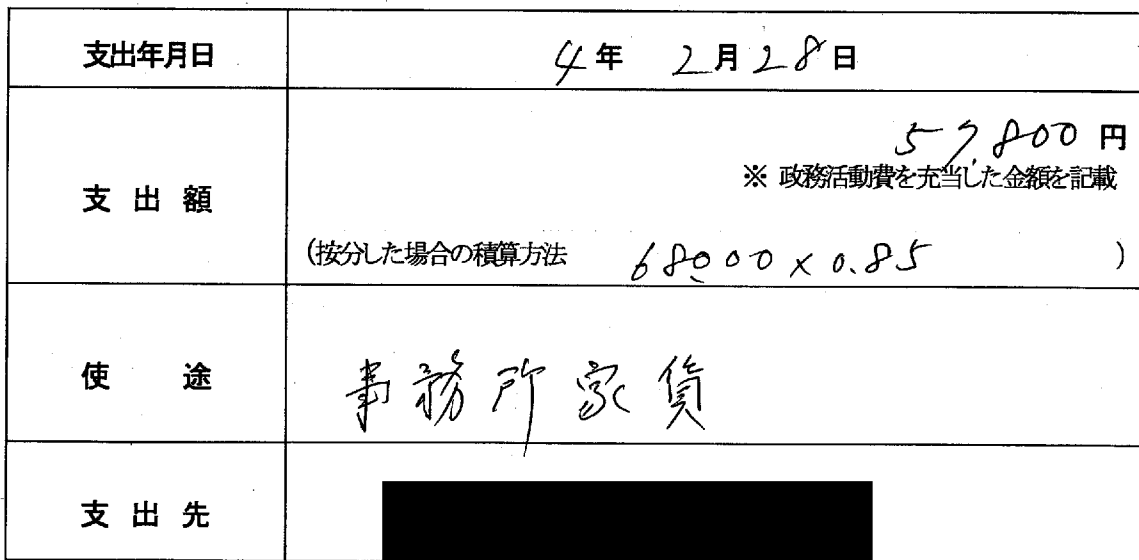 支出年月日 4年 2月28日
57,800円
※ 政務活動費を充当した金額を記載
支出額
(按分した場合の積算方法 68,000×0.85 )
使途 事務所家賃
支出先